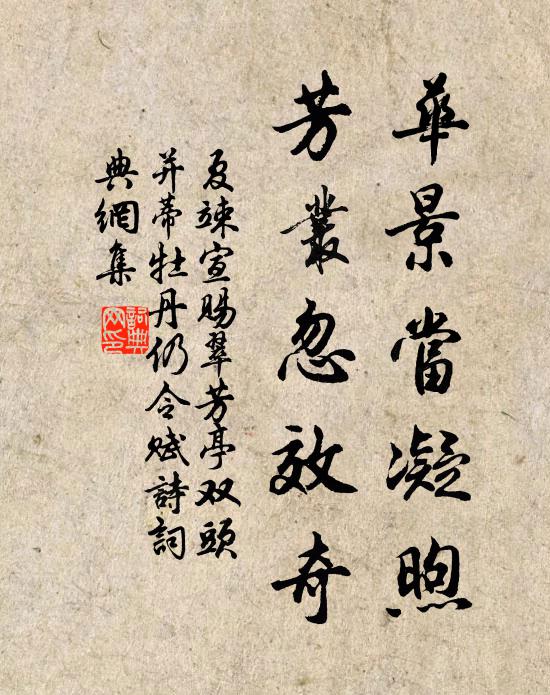 華景當凝煦
芳叢忽效奇
夏竦宣賜翠芳亭双頭
并蒂牡丹仍令賦詩詞
典網集
詞典
网印